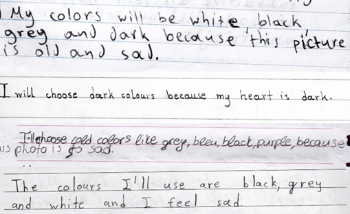 My colors will be white, black
grey and dark because this picture
is old and sad.
I will choose dark colours because my heart is dark.
I'll choose cold colors like grey, bleu, black, purple, because
is photo is so sad.
The colours I'll use are black, grey
and white and I feel sad.